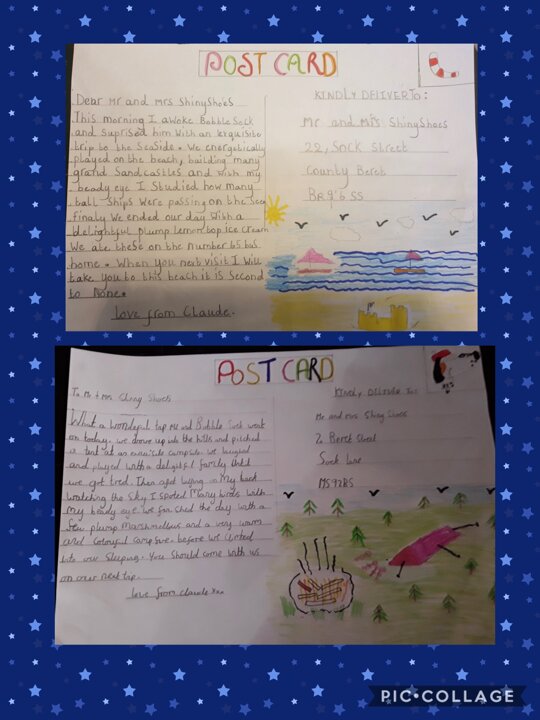 POST CARD
Dear Mr and mrs ShinyShoes
This morning I awoke BobbleSock
and Suprised him With an exquisite
trip to the SeaSide. We energetically
played on the beach, building many
grand Sandcastles and with my
beady eye I Studied how many
ball Ships Were passing on the Sea
finaly We ended our day With a
delightful plump lemon top ice cream
We ate these on the number 65 bus
home. When you next visit I Will
take you to this beach it is Second
to None.
Love from Claude.
KINDLY DELIVER To:
Mr and Mrs ShinyShoes
22, Sock Street
County Beret
SS
POST CARD
To Mr + Mrs Shiny Shoes
What a wonderful trip me and Bobble Sock went
on today. we drove up into the hills and pitched
a tent at an exquisite campsite. we laughed
and played with a delightful family Until
we got tired. Then lying on My back
watching the Sky, I Spoted Many birds with
My beady eye. we finished the day with a
few plump Marshmellows and a very warm
and colorful Campfire. before we climbed
into our Sleeping. You Should come with us
on our next trip.
love from Claude xxx
KINDLY DELIVER To:
Mr and mrs Shiny Shoes
2, Beret Street
Sock Lane
MS92BS
PIC•COLLAGE